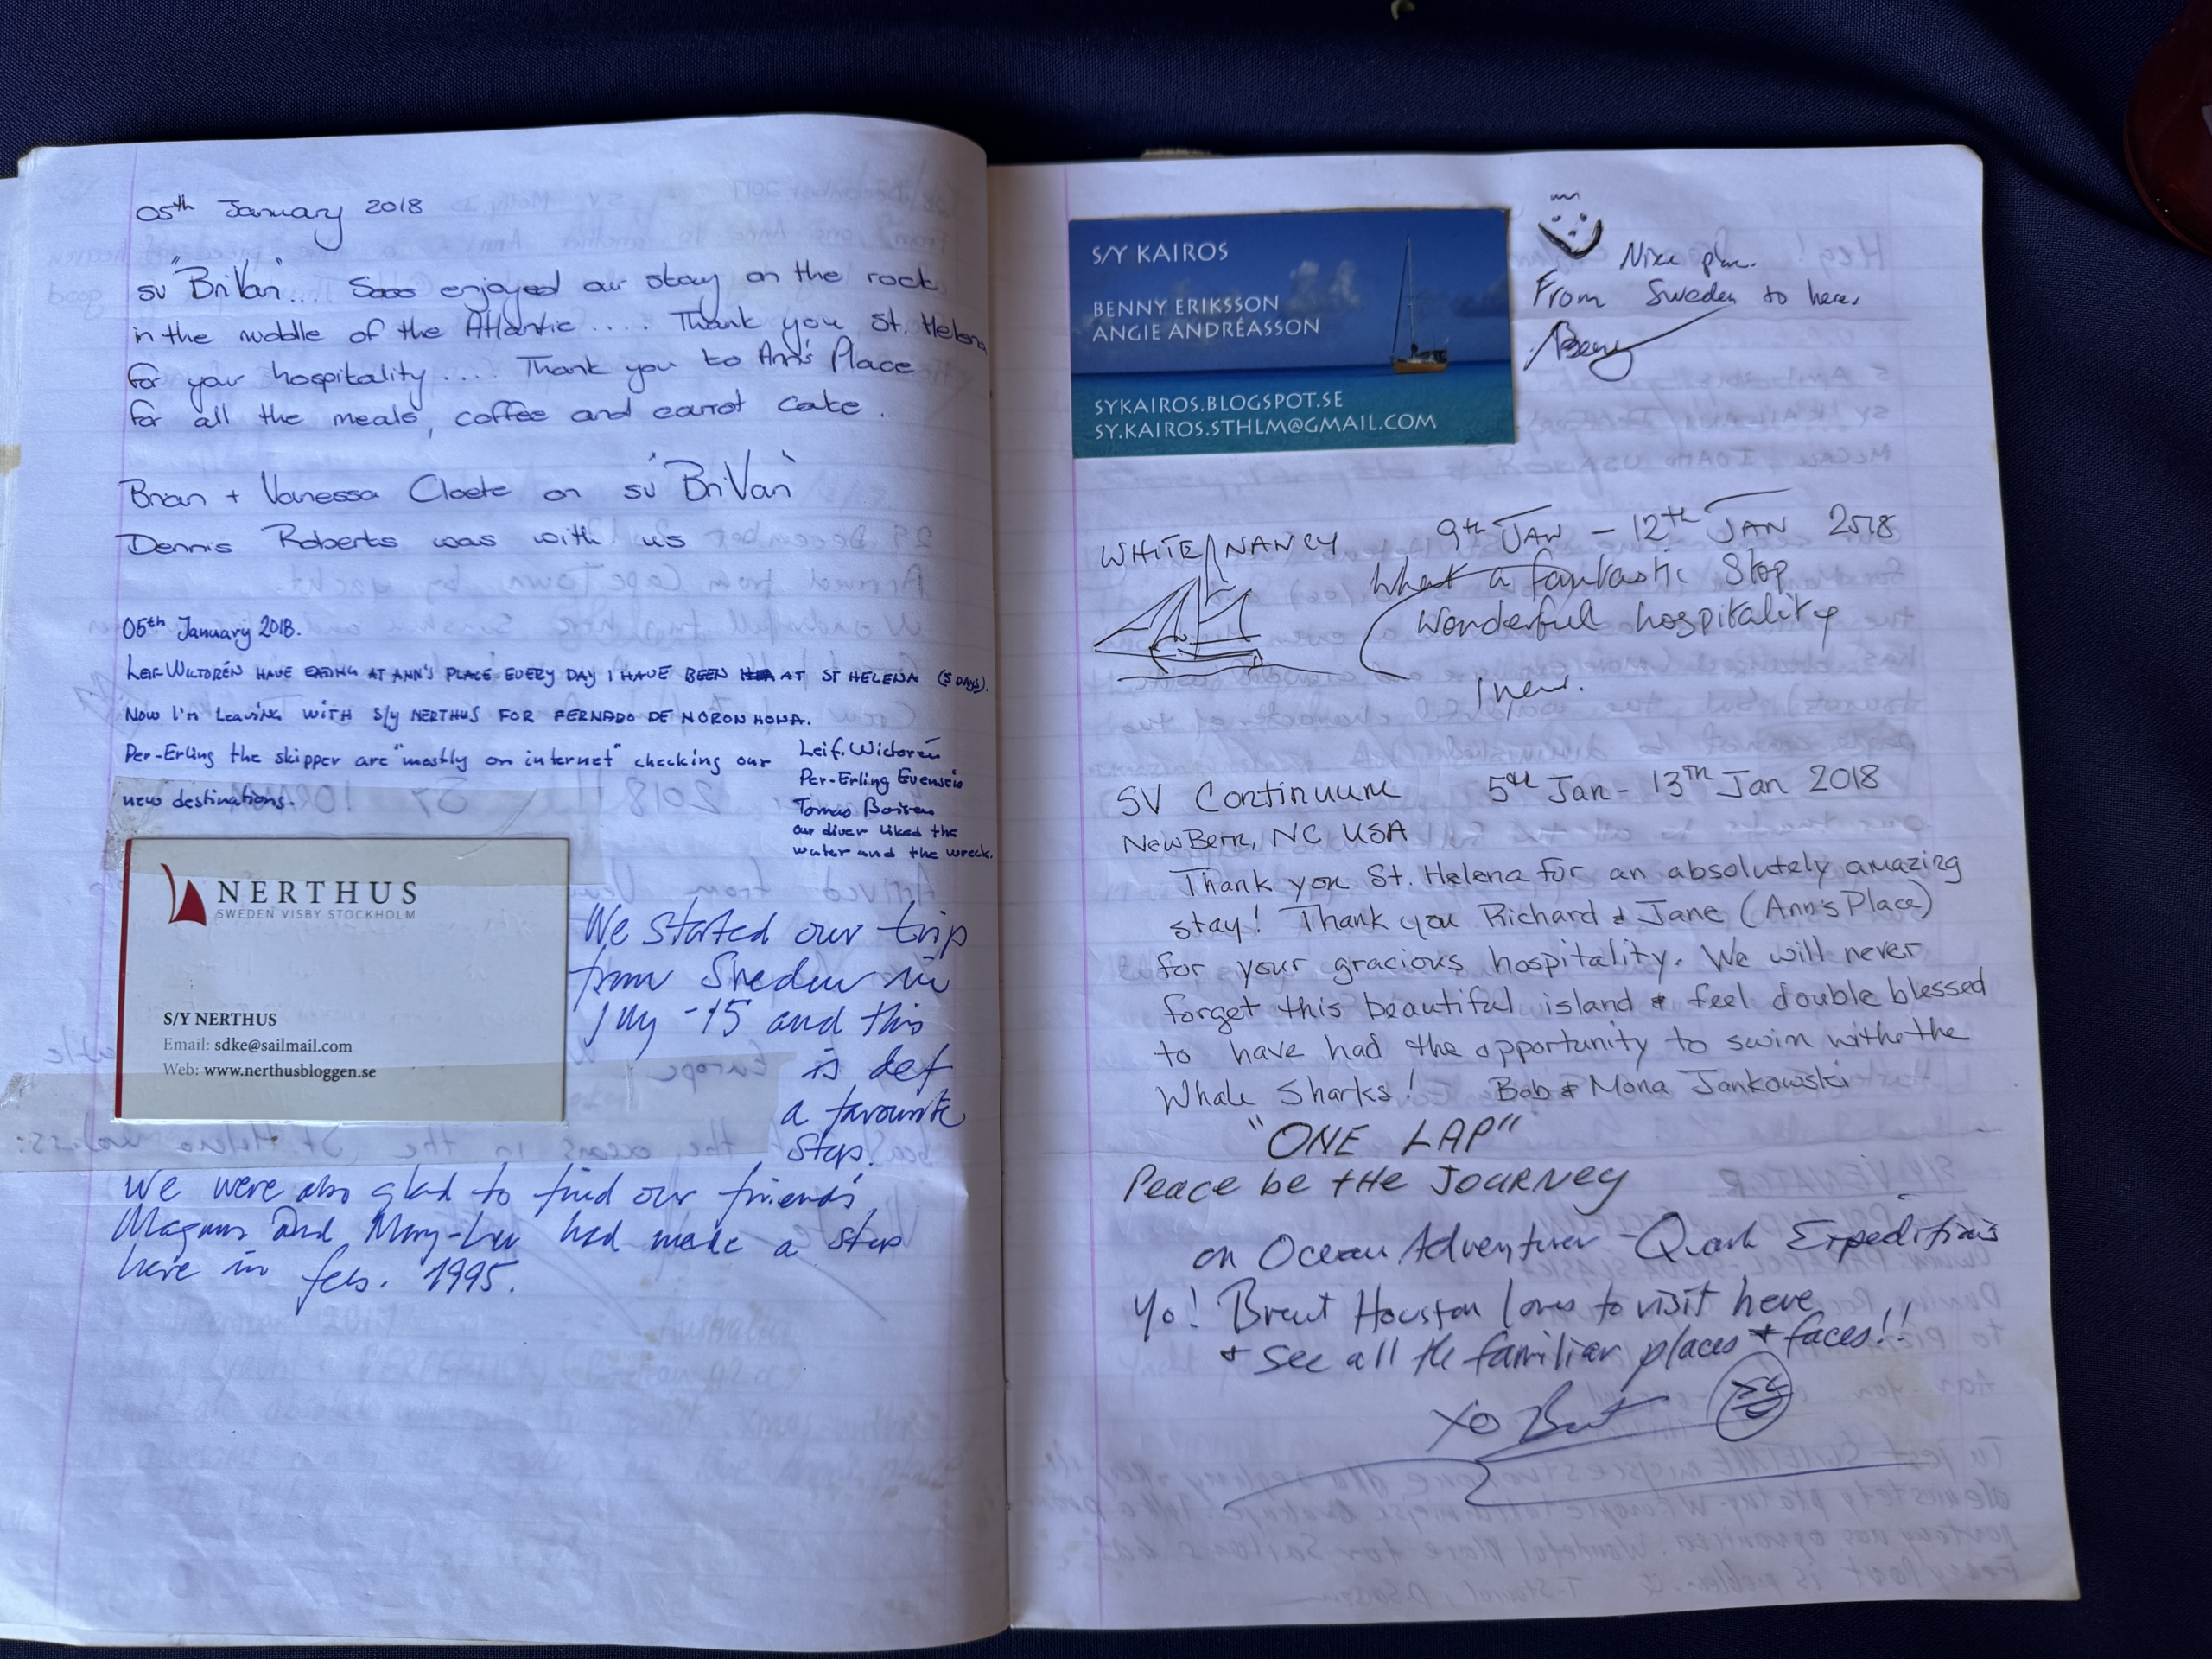 05th January 2018
sv "BriVan".... Sooo enjoyed our stay on the rock
in the middle of the Atlantic.... Thank you St. Helena
for your hospitality.... Thank you to Ann's Place
for all the meals, coffee and carrot cake.
Brian + Vanessa Cloete on sv "BriVan"
Dennis Roberts was with us
05th January 2018.
LEIF WICTORÉN HAVE EATING AT ANN'S PLACE EVERY DAY I HAVE BEEN AT ST HELENA (5 DAYS).
NOW I'M LEAVING WITH S/y NERTHUS FOR FERNADO DE NORON HONA.
Per-Erling the skipper are "mostly on internet" checking our
new destinations.
Leif. Wictorén
Per-Erling Evensen
Tomas
our diver liked the
water and the wreck.
NERTHUS
SWEDEN VISBY STOCKHOLM
S/Y NERTHUS
Email: sdke@sailmail.com
Web: www.nerthusbloggen.se
We started our trip
from Sweden in
July -15 and this
is def
a favourite
stop.
We were also glad to find our friends
Magnus and Mary-Lu had made a stop
here in feb. 1995.
S/Y KAIROS
BENNY ERIKSSON
ANGIE ANDRÉASSON
SYKAIROS.BLOGSPOT.SE
SY.KAIROS.STHLM@GMAIL.COM
Nice place.
From Sweden to here.
Benny
WHITE NANCY 9th JAN - 12th JAN 2018
What a fantastic Stop
Wonderful hospitality
SV Continuum 5th Jan - 13TH Jan 2018
New Bern, NC USA
Thank you St. Helena for an absolutely amazing
stay! Thank you Richard & Jane (Ann's Place)
for your gracious hospitality. We will never
forget this beautiful island & feel double blessed
to have had the opportunity to swim withe the
Whale Sharks! Bob & Mona Jankowski
"ONE LAP"
Peace be tHe JOURNEY
on Ocean Adventurer - Quark Expeditions
Yo! Brent Houston loves to visit here
+ see all the familiar places + faces!!
XO Brent